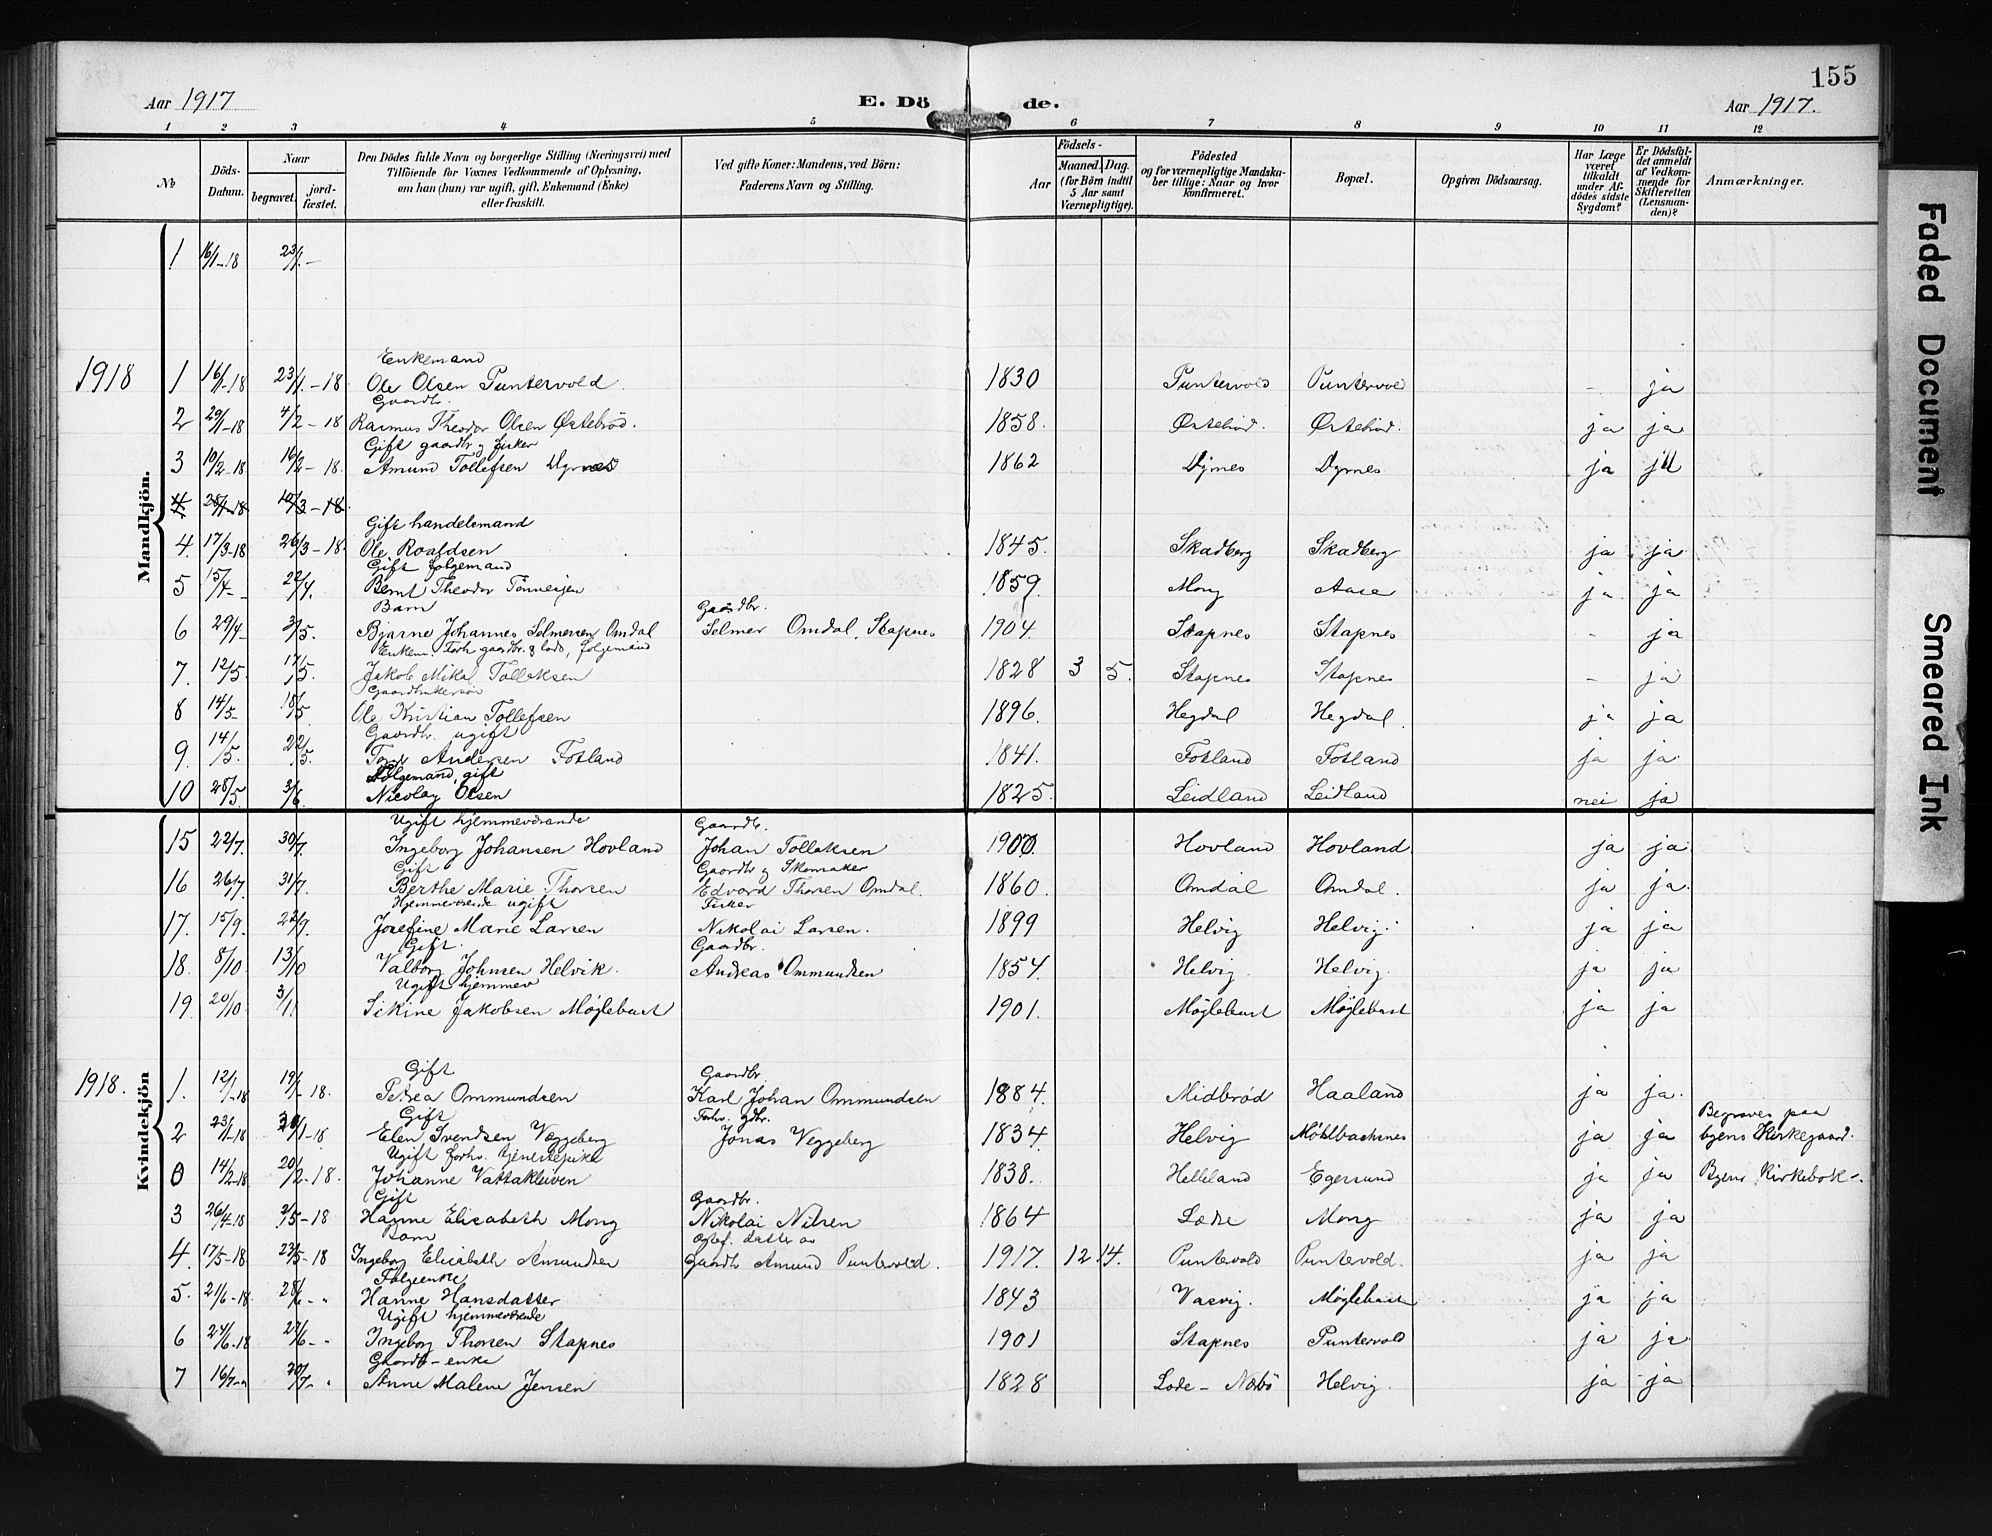 155
Aar 1917 E. Dö de. Aar 1917.
1 2 3 4 5 6 7 8 9 10 11 12
No
Döds-Datum.
Naar
begravet.
jord-fæstet.
Den Dödes fulde Navn og borgerlige Stilling (Næringsvei) med
Tilföiende for Voxnes Vedkommende af Oplysning,
om han (hun) var ugift, gift, Enkemand (Enke)
eller fraskilt.
Ved gifte Koner: Mandens, ved Börn:
Faderens Navn og Stilling.
Födsels-
Aar
Maaned. Dag.
(for Börn indtil
5 Aar samt
Værnepligtige).
Födested
og for værnepligtige Mandska-
ber tillige: Naar og hvor
konfirmeret.
Bopæl.
Opgiven Dödsaarsag.
Har Læge
været
tilkaldt
under Af-
dödes sidste
Sygdom?
Er Dödsfal-
det anmeldt
af Vedkom-
mende for
Skifteretten
(Lensman-
den)?
Anmærkninger.
Mandkjön.
1 16/1-18 23/1. -
1918
Enkemand
1 16/1-18 23/1. - 18 Ole Olsen Puntervold 1830 Puntervold Puntervold - ja
Gaardbr.
2 29/1-18 4/2 - 18 Rasmus Theodor Olsen Østebrød. 1858. Østebrød. Østebrød. ja ja
Gift gaardbr. og fisker
3 10/2-18 16/2 - 18. Amund Tollefsen Dyrnes 1862 Dyrnes Dyrnes ja ja
4 28/1-18 10/3 - 18
Gift handelsmand
4. 17/3-18 26/3 - 18. Ole Roaldsen 1845. Skadberg Skadberg ja ja
Gift følgemand
5 15/4- 22/4. Bernt Theodor Tønnesjen 1859. Mong Aase ja ja
Barn Gaardbr.
6 29/4- 3/5. Bjarne Johannes Selmersen Omdal Selmer Omdal, Stapnes 1904. Stapnes Stapnes - ja
Enkem. Forh gaardbr. & lods, følgemand
7. 12/5. 17/5. Jakob Mikal Tollaksen 1828 3 5. Stapnes Stapnes - ja
Gaardbrukersøn
8 14/5- 18/5. Ole Kristian Tollefsen 1896. Hegdal Hegdal. ja ja
Gaardbr. ugift
9. 14/5. 22/5. Tore Andersen Fotland 1841. Fotland Fotland ja ja
Følgemand, gift
10 28/5. 3/6. Nicolay Olsen 1825. Leidland Leidland nei ja
Kvindekjön
Ugift hjemmeværende Gaardbr.
15 22/7. 30/7. Ingeborg Johansen Hovland Johan Tollaksen 1900. Hovland Hovland. ja ja
Gift Gaardbr og Skomaker
16 26/7. 31/7. Berthe Marie Thorsen Edvard Thorsen Omdal. 1860. Omdal Omdal. ja ja.
Hjemmeværende ugift Fisker
17. 15/9. 22/9. Josefine Marie Larsen Nikolai Larsen. 1899 Helvig Helvig. ja ja
Gift. Gaardbr.
18. 8/10. 13/10 Valborg Johnsen Helvik. Andreas Ommundsen 1854. Helvig. Helvig. ja ja
Ugift hjemmev
19. 20/10. 3/11. Sikine Jakobsen Møglebust 1901. Møglebust Møglebust ja ja
1918.
Gift Gaardbr
1. 12/1-18 19/1 - 18. Petrea Ommundsen Karl Johan Ommundsen 1884. Midbrød Haaland ja ja.
Gift Forhv. gdbr. Begraves paa
2 23/1-18 30/1-18 Elen Svendsen Væggeberg Jonas Veggeberg 1834. Helvig Møklbachsnes ja ja byens Kirkegaard.
Ugift forhv. tjenestepike
0 14/2-18 20/2-18. Johanne Vattakleiven 1838. Helleland Egersund ja ja Byens Kirkebok -.
Gift Gaardbr.
3 26/4-18 2/5-18 Hanne Elisabeth Mong Nikolai Nilsen 1864 Lode Mong ja ja
Barn Egtef. datter av
4. 17/5-18 23/5-18 Ingeborg Elisabeth Amundsen Gaardbr Amund Puntervold. 1917. 12. 14. Puntervold Puntervold. ja ja
Følgeenke
5. 21/6-18. 28/6 - " Hanne Hansdatter 1843 Vasvig. Møglebust ja ja
Ugift hjemmeværende
6 24/6-18 27/6 - " Ingeborg Thorsen Stapnes 1901 Stapnes Puntervold ja ja
Gaardb-enke
7 16/7-" 20/7- " Anne Malene Jensen 1828 Lode - Nesbø Helvig. ja ja
Faded Document
Smeared Ink